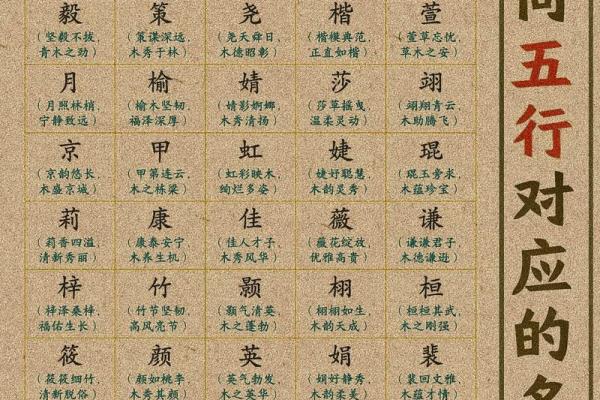 毅 策 尧 楷 萱
（坚毅不拔，青木之劲） （策谋深远，木秀于林） （尧天舜日，木德昭彰） （楷模典范，正直如楷） （萱草忘忧，草木之安）
月 榆 婧 莎 翊
（月照林梢，宁静致远） （榆木坚韧，福泽深厚） （婧影婀娜，木秀清扬） （莎草摇曳，温柔灵动） （翊翔青云，木助腾飞）
京 甲 虹 婕 琨
（京韵悠长，木盛京城） （甲第连云，木之栋梁） （虹彩映木，绚烂多姿） （婕好聪慧，木韵灵秀） （琨玉旁求，木蕴珍宝）
莉 康 佳 薇 谦
（莉香四溢，清新秀丽） （康泰安宁，木养生机） （佳人才子，木秀风华） （薇花绽放，优雅高贵） （谦谦君子，木德谦逊）
梓 竹 颢 栩 桓
（梓泽桑梓，福佑生长） （竹节坚韧，高风亮节） （颢气清英，木之蓬勃） （栩栩如生，木韵天成） （桓桓其武，木之刚强）
筱 颜 英 娟 裴
（筱筱细竹，清新脱俗） （颜如桃李，木秀其颜） （英气勃发，木之英华） （娟好静秀，木韵柔美） （裴回文雅，木蕴才情）
尚五行对应的名